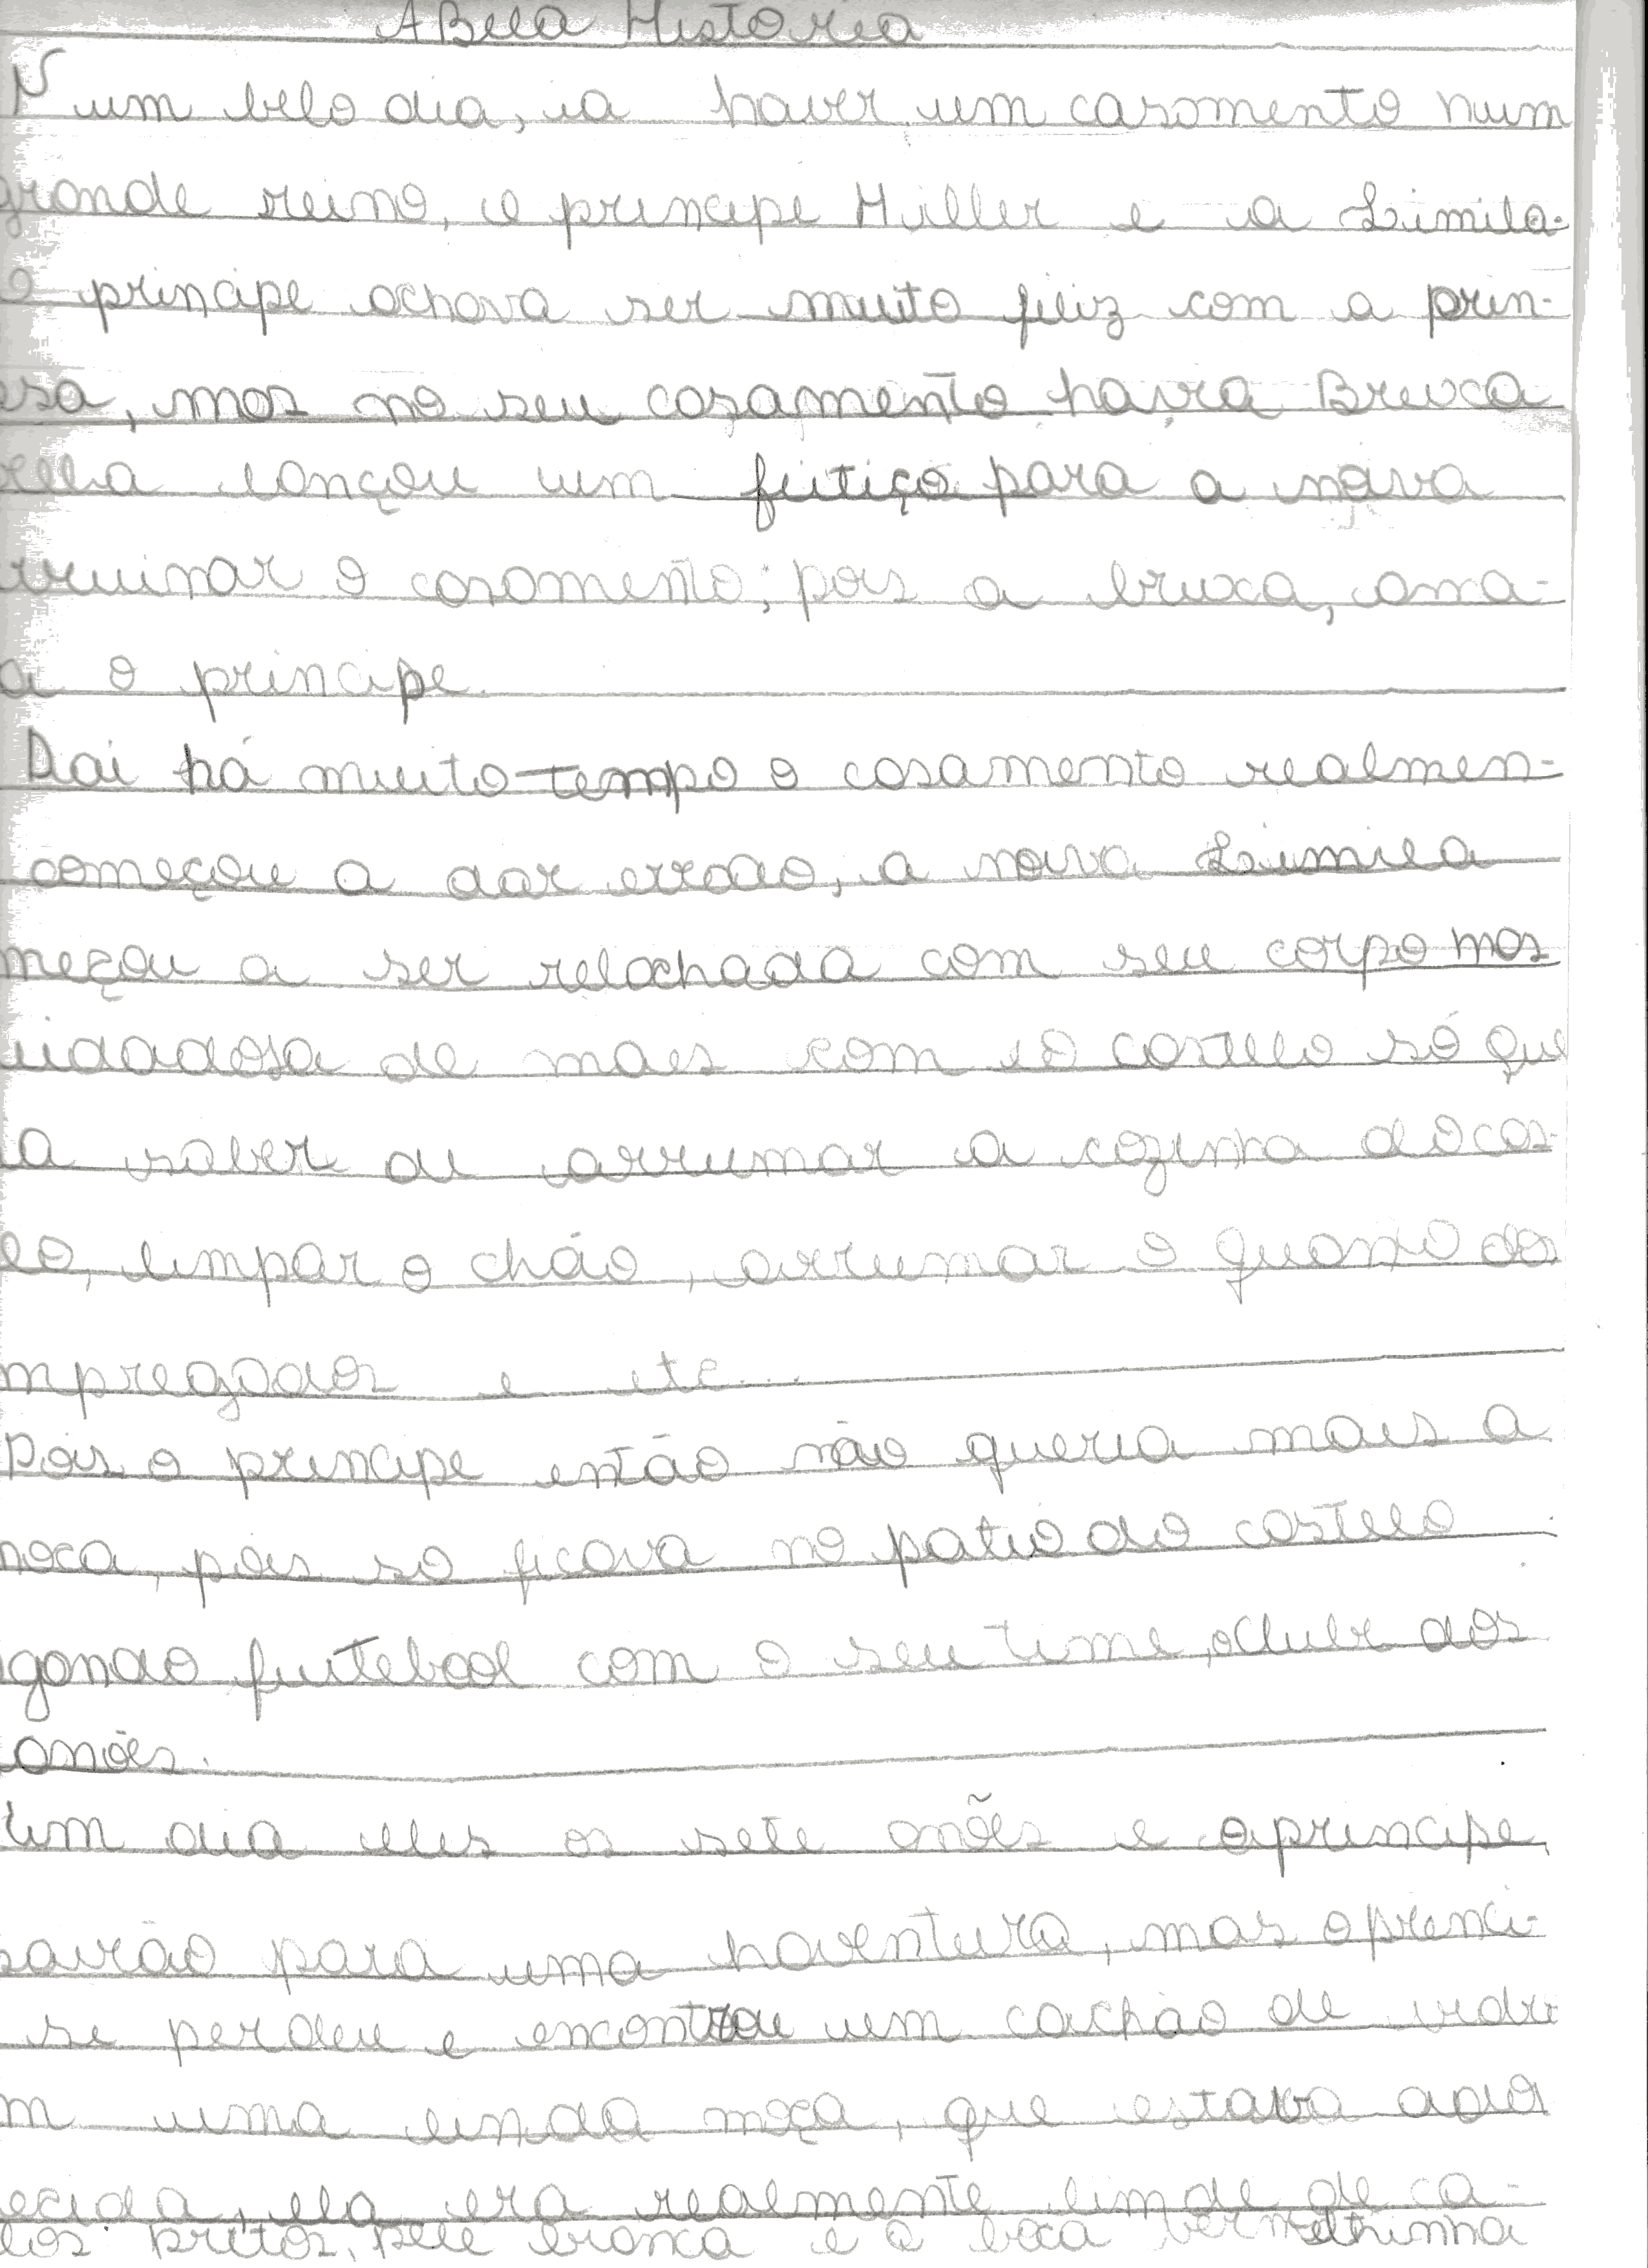 A Bela Historia
N um belo dia, ia haver um casamento num
grande reino, o principe Hiller e a Limila.
O principe achava ser muito feliz com a prin-
esa, mas no seu casamento havia Bruxa
ella lançou um feitiço para a noiva
arruinar o casamento; pois a bruxa, ama-
a o principe.
Dai há muito tempo o casamento realmen-
começou a dar errado, a noiva Limila
meçou a ser relachada com seu corpo mas
uidadosa de mais com o castelo só que
ia saber de arrumar a cozinha do cas-
lo, limpar o chão, arrumar o quarto dos
mpregados e etc...
Pois o principe então não queria mais a
moça, pois só ficava no patio do castelo
gando futebool com o seu time, o clube dos
anões.
Um dia eles os sete anões e o principe,
sairão para uma haventura, mas o princi-
se perdeu e encontrou um cachão de vidro
m uma linda moça, que estava ado
ecida, ela era realmente linda de ca-
los pretos, pele branca e a boca vermelhinha